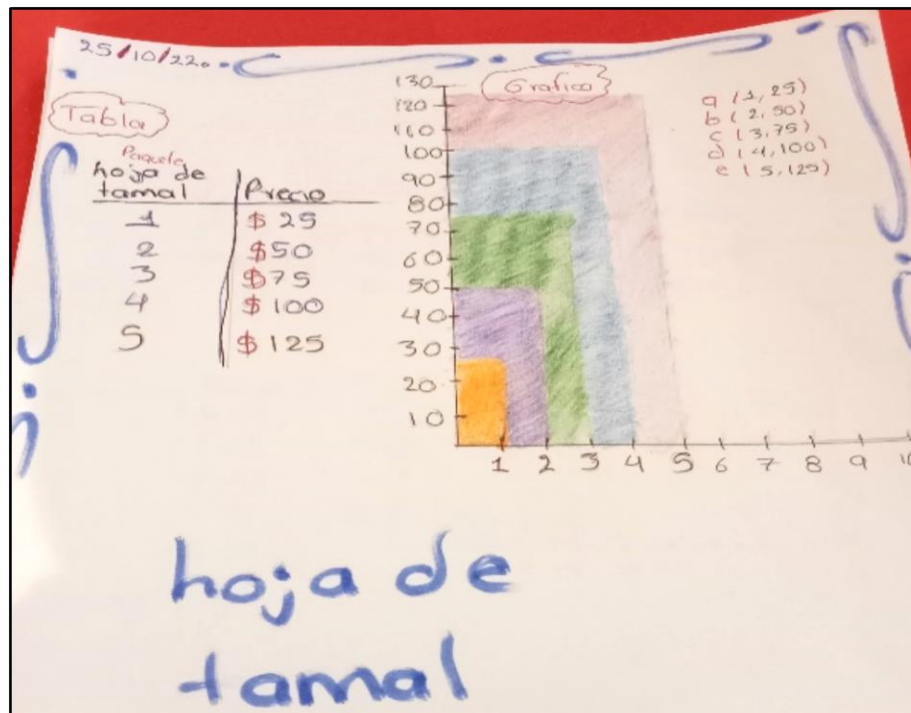 25/10/22.
Tabla
Paquete
hoja de
tamal
Precio
1 $ 25
2 $50
3 $75
4 $ 100
5 $ 125
Grafico
130
120
110
100
90
80
70
60
50
40
30
20
10
1 2 3 4 5 6 7 8 9 10
a (1, 25)
b (2, 50)
c (3, 75)
d (4, 100)
e (5, 125)
hoja de
tamal